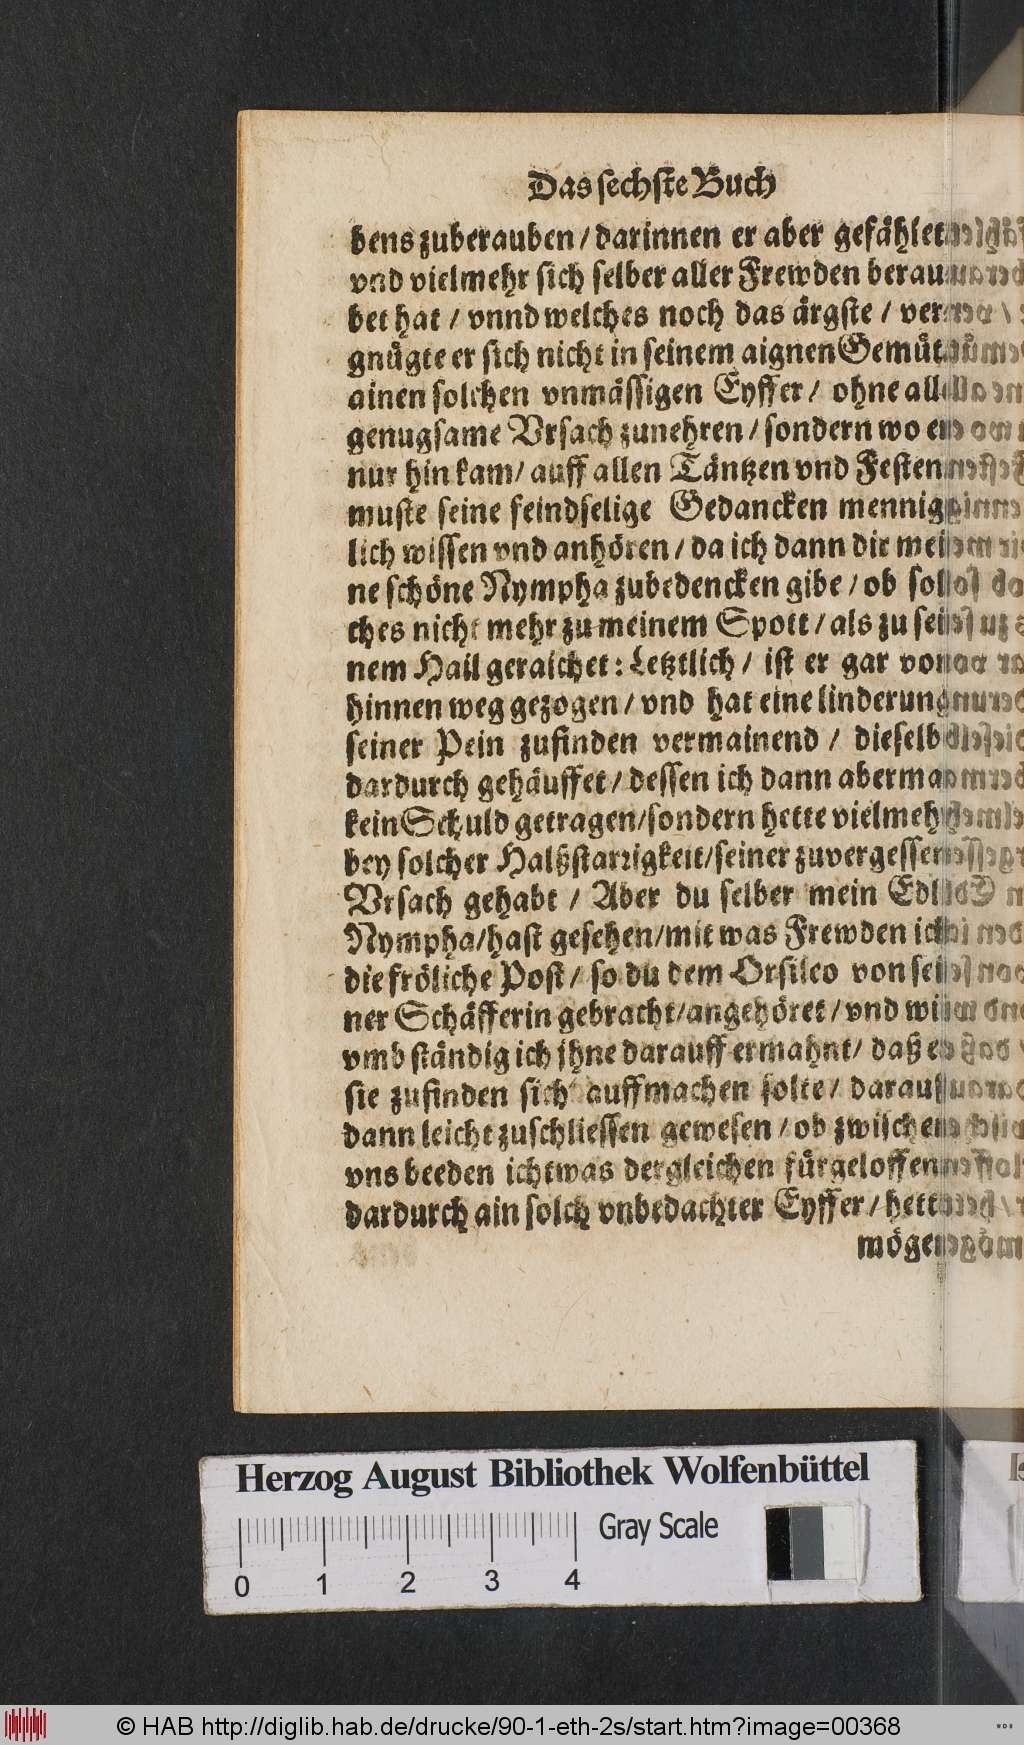 Das sechste Buch
bens zuberauben / darinnen er aber gefählet
vnd vielmehr sich selber aller Frewden berau
bet hat / vnnd welches noch das ärgste / ver
gnügte er sich nicht in seinem aignen Gemüt
ainen solchen vnmässigen Eyffer / ohne all
genugsame Vrsach zunehren / sondern wo er
nur hin kam / auff allen Täntzen vnd Festen
muste seine feindselige Gedancken mennig
lich wissen vnd anhören / da ich dann dir mei
ne schöne Nympha zubedencken gibe / ob sol
ches nicht mehr zu meinem Spott / als zu sei
nem Hail geraichet: Letztlich / ist er gar von
hinnen weg gezogen / vnd hat eine linderung
seiner Pein zufinden vermainend / dieselb
dardurch gehäuffet / dessen ich dann aberma
kein Schuld getragen / sondern hette vielmeh
bey solcher Halßstarrigkeit / seiner zuvergessen
Vrsach gehabt / Aber du selber mein Edl
Nympha / hast gesehen / mit was Frewden ich
die fröliche Post / so du dem Orsileo von sei
ner Schäfferin gebracht / angehöret / vnd wi
vmb ständig ich jhne darauff ermahnt / daß er
sie zufinden sich auffmachen solte / darauß
dann leicht zuschliessen gewesen / ob zwischen
vns beeden ichtwas dergleichen fürgeloffen
dardurch ain solch vnbedachter Eyffer / hett
mögen
Herzog August Bibliothek Wolfenbüttel
Gray Scale
0 1 2 3 4
© HAB http://diglib.hab.de/drucke/90-1-eth-2s/start.htm?image=00368